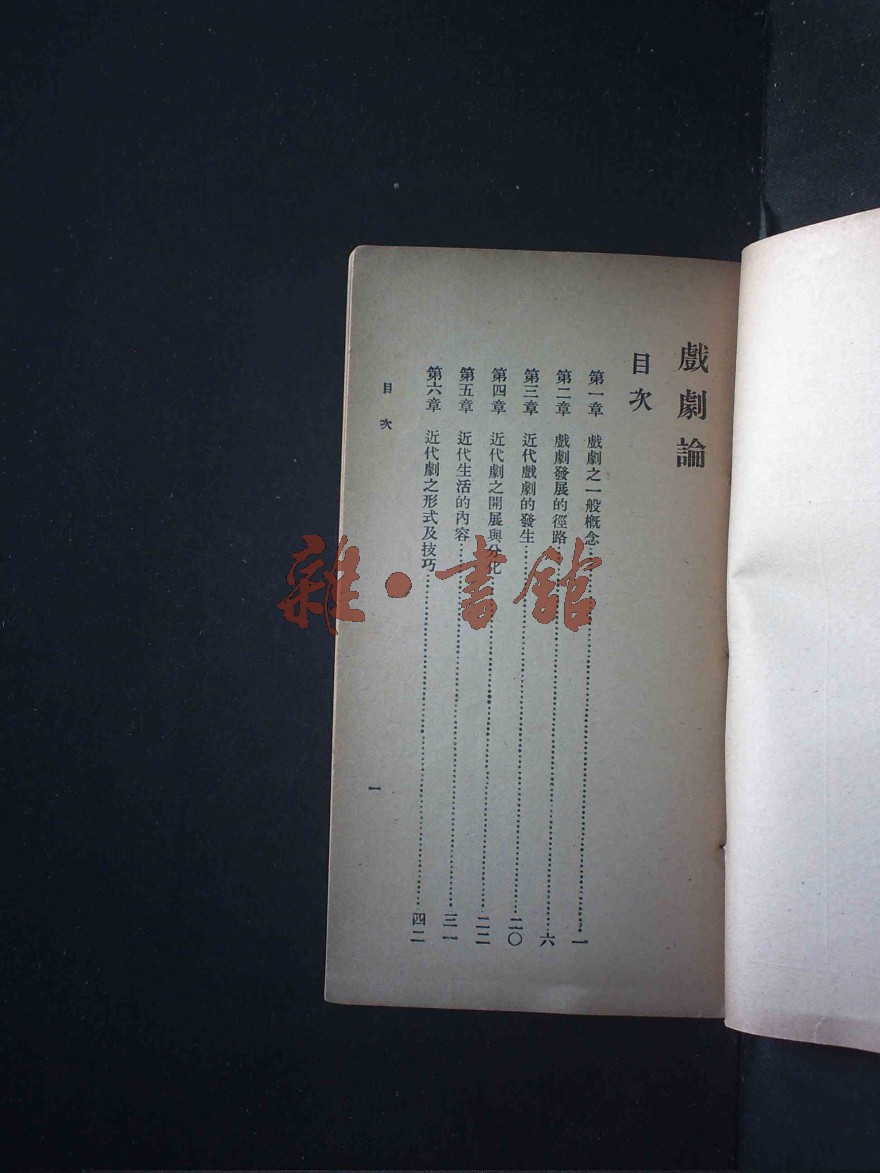 戲劇論
目次
第一章 戲劇之一般概念……一
第二章 戲劇發展的徑路……六
第三章 近代戲劇的發生……二〇
第四章 近代劇之開展與分化……二二
第五章 近代生活的內容……三一
第六章 近代劇之形式及技巧……四二
目次
一
雜·書館